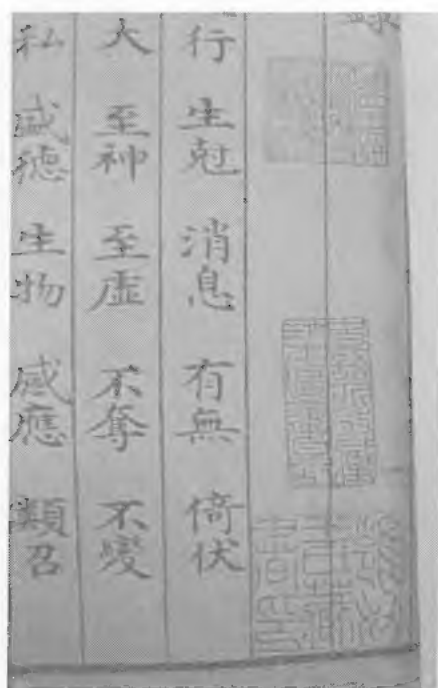 錄
行 生剋 消息 有無 倚伏
大 至神 至虛 不奪 不變
私 盛德 生物 感應 類召